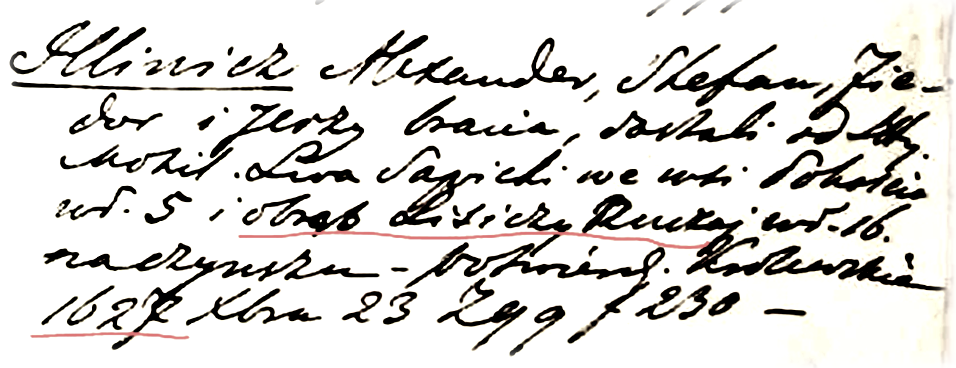 Illinicz Alexander, Stefan, Fie-
dor i Jerzy bracia, dostali od
Mohil. Lwa Sapiehi we wsi
wł. 5 i obrąb Lisiczy Ruczaj wł. 16.
na czynszu – potwierd. Królewskie
1627 Xbra 23 Z 99 f 230 –